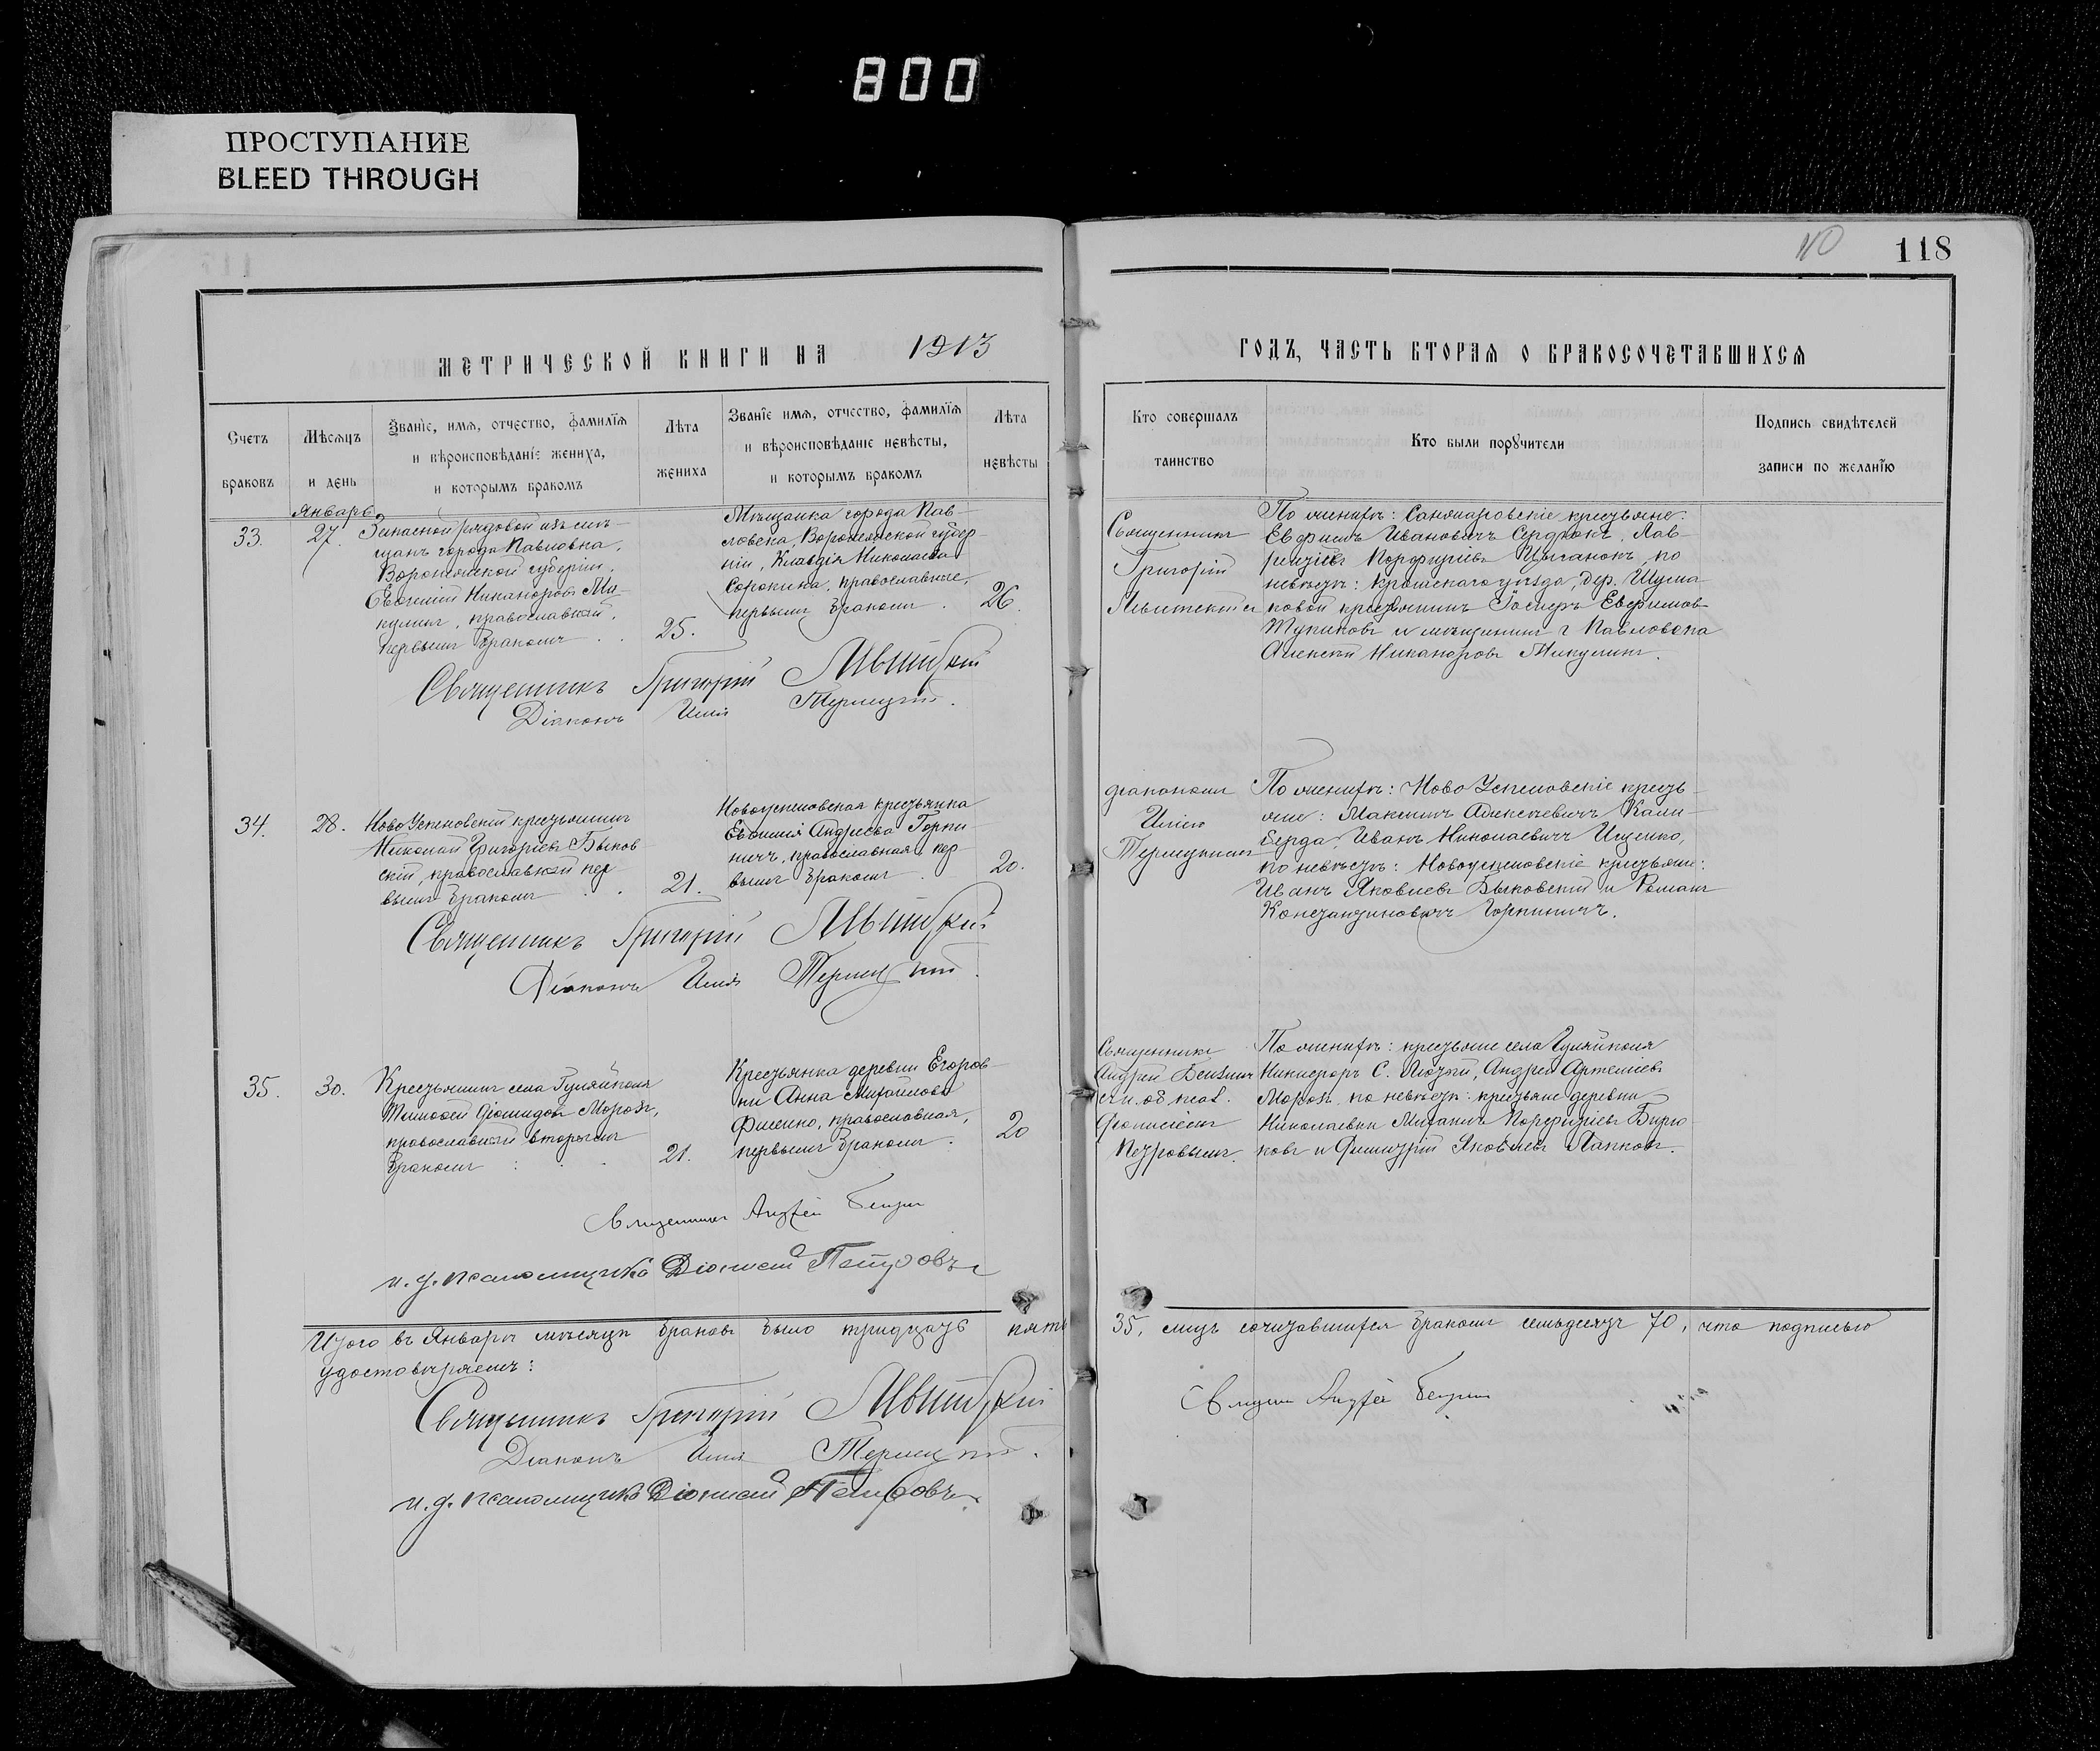 800
ПРОСТУПАНИЕ
BLEED THROUGH
110
118
МЕТРИЧЕСКОЙ КНИГИ НА 1913
ГОДЪ, ЧАСТЬ ВТОРАЯ О БРАКОСОЧЕТАВШИХСЯ
Счетъ
браковъ
Мѣсяцъ
и день
Званіе, имя, отчество, фамилія
и вѣроисповѣданіе жениха,
и которымъ бракомъ
Лѣта
жениха
Званіе имя, отчество, фамилія
и вѣроисповѣданіе невѣсты,
и которымъ бракомъ
Лѣта
невѣсты
Кто совершалъ
таинство
Кто были поручители
Подпись свидѣтелей
записи по желанію
Январь
33.
27.
Запасной рядовой изъ мѣ-
щанъ города Павловка,
Воронежской губерніи,
Евгеній Никаноровъ Ми-
кулинъ, православный,
первымъ бракомъ
25.
Мѣщанка города Пав-
ловска, Воронежской губер-
ніи, Клавдія Николаева
Сорокина, православные,
первымъ бракомъ.
26.
Священникъ
Григорій
По женихѣ: Санжаровскіе крестьяне:
Евфимъ Ивановичъ Сердюкъ, Лав-
рентіевъ Порфиріевъ Цыганокъ, по
невѣстѣ: уѣзда, дер. Шума-
ковой крестьянинъ Евфимов
Тупиковъ и мѣщанинъ г. Павловска
Алексѣй Никаноровъ Микулинъ.
Священникъ Григорій
Діаконъ Илія
34.
28.
НовоУспеновскій крестьянинъ
Николай Григорьевъ Быков
скій, православный пер
вымъ бракомъ
21.
Новоуспеновская крестьянка
Евфимія Андреева Горпи-
ничъ, православная, пер
вымъ бракомъ
20.
діакономъ
Иліею
По женихѣ: Ново Успеновскіе кресть-
яне: Максимъ Алексѣевичъ Кали-
берда, Иванъ Николаевичъ Ищенко,
по невѣстѣ: Новоуспеновскіе крестьяне:
Иванъ Яковлевъ Быковскій и Романъ
Константиновичъ Горпиничъ.
Священникъ Григорій
Діаконъ Илія
35.
30.
Крестьянинъ села Гуляйполя
Тимофей Діомидовъ Морозъ,
православный вторымъ
бракомъ
21.
Крестьянка деревни Егоров-
ки Анна Михайлова
Фисенко, православная,
первымъ бракомъ.
20
Священникъ
Андрей
Діонисіемъ
Петровымъ.
По женихѣ: крестьяне села Гуляйполя
Никифоръ С. Лютый, Андрей Артеміевъ
Морозъ, по невѣстѣ: крестьяне деревни
Николаевки Михаилъ Порфиріевъ Бирю-
ковъ и Димитрій Яковлевъ Лапковъ.
Священникъ Андрей
и. д. псаломщика Діонисій Петровъ
Итого въ Январѣ мѣсяцѣ браковъ было тридцать пять 35, лицъ сочетавшихся бракомъ семьдесятъ 70, что подписью
удостовѣряемъ:
Священникъ Григорій
Діаконъ Илія
и. д. псаломщика Діонисій Петровъ
Священникъ Андрей